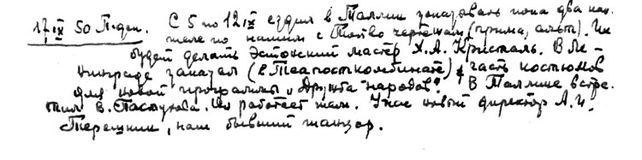 17 IX 50 П-ден. С 5 по 12 IX ездил в Таллин заказывать пока два кан-
теле по нашим с чертежам (прима, альт). Их
будет делать Эстонский мастер Х.А. Кристаль. В Ле-
нинграде заказал (в Театкомбинате) часть костюмов
для новой программы "Дружба народов". В Таллине встре-
тил В. Пастухова. Он работает там. У них новый директор А.И.
Терешкин, наш бывший танцор.